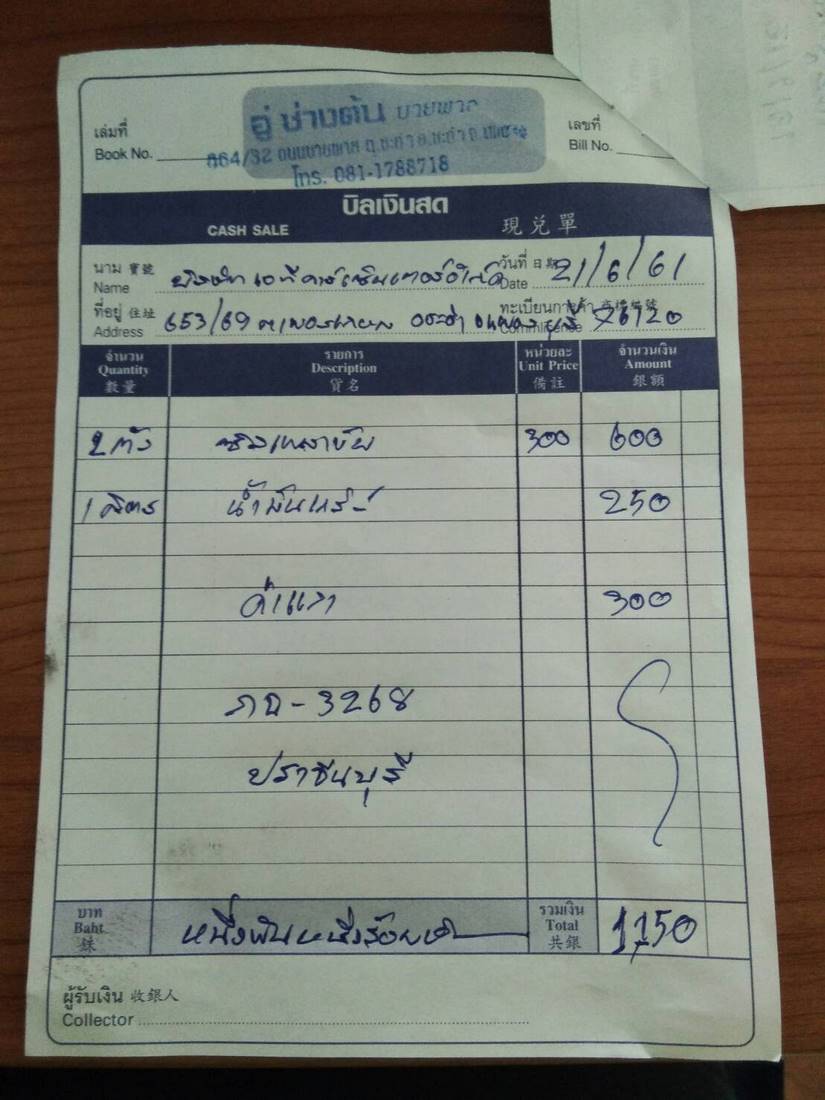 อู่ ช่างต้น บายพาส
เล่มที่ เลขที่
Book No. Bill No.
864/32 ถนนบายพาส ต.ชะอำ อ.ชะอำ จ.เพชรบุรี
โทร. 081-1788718
บิลเงินสด
CASH SALE 現兌單
นาม 寶號 วันที่ 日期 21/6/61
Name บริษัท Date
ที่อยู่ 住址 ทะเบียนการค้า
Address 653/69 76120
จำนวน รายการ หน่วยละ จำนวนเงิน
Quantity Description Unit Price Amount
數量 貨名 備註 銀額
2 ตัว 300 600
1 ลิตร น้ำมันเกียร์ 250
ค่าแรง 300
3268
ปราจีนบุรี
บาท รวมเงิน
Baht หนึ่งพันหนึ่งร้อยห้า Total 1150
銖 共銀
ผู้รับเงิน 收銀人
Collector